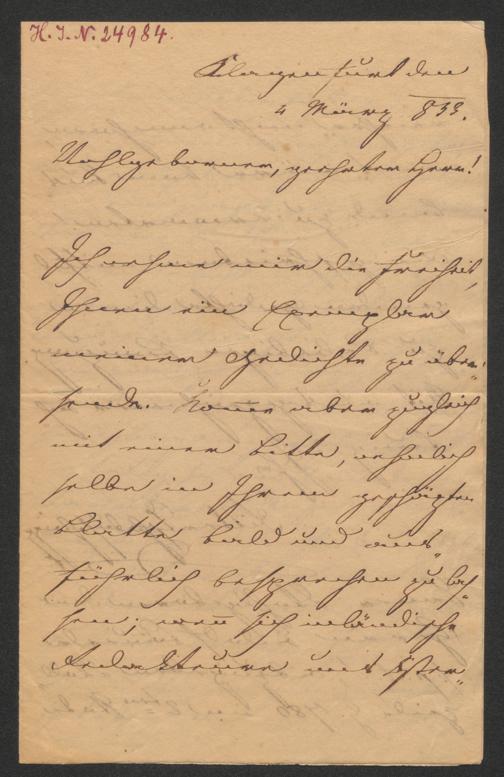 H. I. N. 24984.
Klagenfurt den
4 März 833.
Wohlgeborner, geehrter Herr!
Ich nehme mir die Freiheit,
Ihnen ein Exemplar
meiner Gedichte zu über„
sende. Komme aber zugleich
mit einer Bitte, nehmlich
selbe in Ihrem geschäzten
Blatte bald und aus„
führlich besprechen zu las„
sen; wenn sich inländische
Redakteure mit öster„